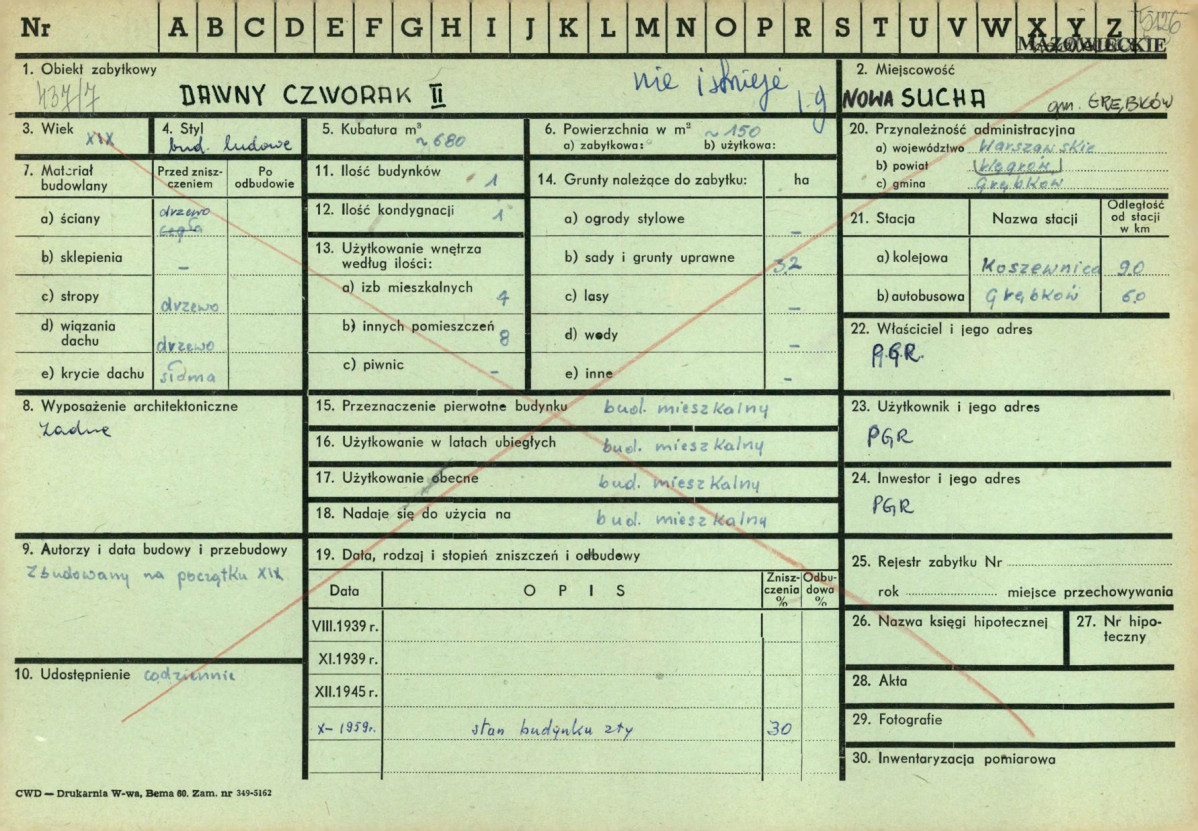 Nr A B C D E F G H I J K L M N O P R S T U V W X Y Z 5126
MAZOWIECKIE
1. Obiekt zabytkowy
437/7
DAWNY CZWORAK II
nie istnieje
2. Miejscowość
NOWA SUCHA gm. GRĘBKÓW
3. Wiek
XIX
4. Styl
bud. ludowe
5. Kubatura m³
~680
6. Powierzchnia w m² ~150
a) zabytkowa: b) użytkowa:
7. Materiał budowlany
Przed zniszczeniem
Po odbudowie
a) ściany drzewo
cegła
b) sklepienia –
c) stropy drzewo
d) wiązania dachu drzewo
e) krycie dachu słoma
8. Wyposażenie architektoniczne
żadne
9. Autorzy i data budowy i przebudowy
Zbudowany na początku XIX
10. Udostępnienie codziennie
11. Ilość budynków 1
12. Ilość kondygnacji 1
13. Użytkowanie wnętrza
według ilości:
a) izb mieszkalnych 4
b) innych pomieszczeń 8
c) piwnic –
14. Grunty należące do zabytku: ha
a) ogrody stylowe –
b) sady i grunty uprawne 32
c) lasy –
d) wody –
e) inne –
15. Przeznaczenie pierwotne budynku bud. mieszkalny
16. Użytkowanie w latach ubiegłych bud. mieszkalny
17. Użytkowanie obecne bud. mieszkalny
18. Nadaje się do użycia na bud. mieszkalny
19. Data, rodzaj i stopień zniszczeń i odbudowy
Data O P I S Zniszczenia % Odbudowa %
VIII.1939 r.
XI.1939 r.
XII.1945 r.
X–1959r. stan budynku zły 30
20. Przynależność administracyjna
a) województwo Warszawskie
b) powiat Węgrów
c) gmina Grębków
21. Stacja Nazwa stacji Odległość od stacji w km
a) kolejowa Koszewnica 9.0
b) autobusowa Grębków 6.0
22. Właściciel i jego adres
P.G.R.
23. Użytkownik i jego adres
PGR
24. Inwestor i jego adres
PGR
25. Rejestr zabytku Nr
rok miejsce przechowywania
26. Nazwa księgi hipotecznej
27. Nr hipoteczny
28. Akta
29. Fotografie
30. Inwentaryzacja pomiarowa
CWD — Drukarnia W-wa, Bema 60. Zam. nr 349-5162